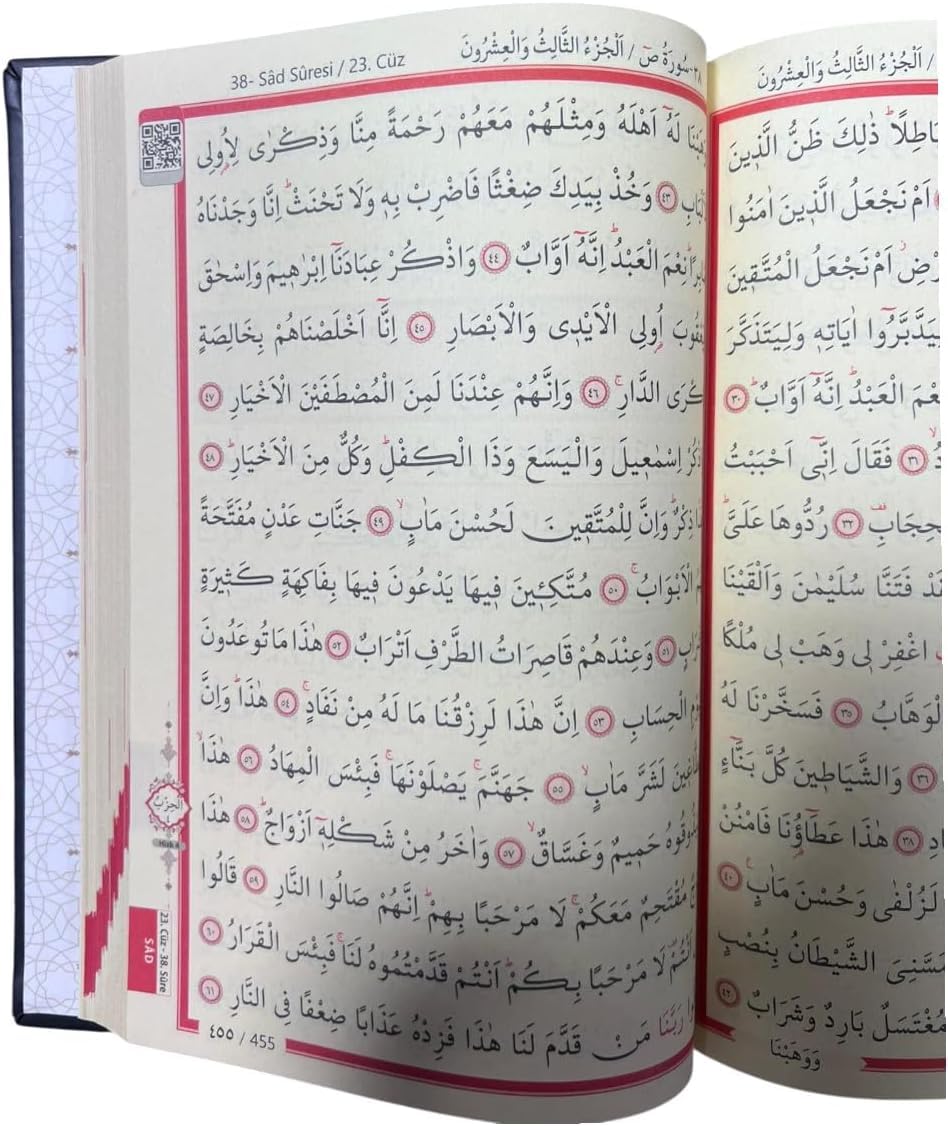 / اَلْجُزْءُ الثَّالِثُ وَالْعِشْرُونَ
بَاطِلاًۜ ذٰلِكَ ظَنُّ الَّذ۪ينَ
اَمْ نَجْعَلُ الَّذ۪ينَ اٰمَنُوا
اَمْ نَجْعَلُ الْمُتَّق۪ينَ
لِيَدَّبَّرُٓوا اٰيَاتِه۪ وَلِيَتَذَكَّرَ
نِعْمَ الْعَبْدُۜ اِنَّهُٓ اَوَّابٌۜ ﴿٣٠﴾
﴿٣١﴾ فَقَالَ اِنّ۪ٓي اَحْبَبْتُ
بِالْحِجَابِ۠ ﴿٣٢﴾ رُدُّوهَا عَلَيَّۜ
فَتَنَّا سُلَيْمٰنَ وَاَلْقَيْنَا
اغْفِرْ ل۪ي وَهَبْ ل۪ي مُلْكًا
الْوَهَّابُ ﴿٣٥﴾ فَسَخَّرْنَا لَهُ
﴿٣٦﴾ وَالشَّيَاط۪ينَ كُلَّ بَنَّٓاءٍ
﴿٣٨﴾ هٰذَا عَطَٓاؤُ۬نَا فَامْنُنْ
لَزُلْفٰى وَحُسْنَ مَاٰبٍ۟ ﴿٤٠﴾
مَسَّنِيَ الشَّيْطَانُ بِنُصْبٍ
مُغْتَسَلٌ بَارِدٌ وَشَرَابٌ ﴿٤٢﴾
وَوَهَبْنَا
٣٨-سُورَةُ صٓ / اَلْجُزْءُ الثَّالِثُ وَالْعِشْرُونَ
38- Sâd Sûresi / 23. Cüz
وَوَهَبْنَا لَهُٓ اَهْلَهُ وَمِثْلَهُمْ مَعَهُمْ رَحْمَةً مِنَّا وَذِكْرٰى لِاُو۬لِي
الْاَلْبَابِ ﴿٤٣﴾ وَخُذْ بِيَدِكَ ضِغْثًا فَاضْرِبْ بِه۪ وَلَا تَحْنَثْۜ اِنَّا وَجَدْنَاهُ
صَابِرًاۜ نِعْمَ الْعَبْدُۜ اِنَّهُٓ اَوَّابٌ ﴿٤٤﴾ وَاذْكُرْ عِبَادَنَٓا اِبْرٰه۪يمَ وَاِسْحٰقَ
وَيَعْقُوبَ اُو۬لِي الْاَيْد۪ي وَالْاَبْصَارِ ﴿٤٥﴾ اِنَّٓا اَخْلَصْنَاهُمْ بِخَالِصَةٍ
ذِكْرَى الدَّارِۚ ﴿٤٦﴾ وَاِنَّهُمْ عِنْدَنَا لَمِنَ الْمُصْطَفَيْنَ الْاَخْيَارِۜ ﴿٤٧﴾
وَاذْكُرْ اِسْمٰع۪يلَ وَالْيَسَعَ وَذَا الْكِفْلِۜ وَكُلٌّ مِنَ الْاَخْيَارِۜ ﴿٤٨﴾
هٰذَا ذِكْرٌۜ وَاِنَّ لِلْمُتَّق۪ينَ لَحُسْنَ مَاٰبٍۙ ﴿٤٩﴾ جَنَّاتِ عَدْنٍ مُفَتَّحَةً
لَهُمُ الْاَبْوَابُۚ ﴿٥٠﴾ مُتَّكِـ۪ٔينَ ف۪يهَا يَدْعُونَ ف۪يهَا بِفَاكِهَةٍ كَث۪يرَةٍ
وَشَرَابٍ ﴿٥١﴾ وَعِنْدَهُمْ قَاصِرَاتُ الطَّرْفِ اَتْرَابٌ ﴿٥٢﴾ هٰذَا مَا تُوعَدُونَ
لِيَوْمِ الْحِسَابِ ﴿٥٣﴾ اِنَّ هٰذَا لَرِزْقُنَا مَا لَهُ مِنْ نَفَادٍۚ ﴿٥٤﴾ هٰذَاۜ وَاِنَّ
لِلطَّاغ۪ينَ لَشَرَّ مَاٰبٍۙ ﴿٥٥﴾ جَهَنَّمَۚ يَصْلَوْنَهَاۚ فَبِئْسَ الْمِهَادُ ﴿٥٦﴾ هٰذَاۙ
فَلْيَذُوقُوهُ حَم۪يمٌ وَغَسَّاقٌۙ ﴿٥٧﴾ وَاٰخَرُ مِنْ شَكْلِه۪ٓ اَزْوَاجٌۜ ﴿٥٨﴾ هٰذَا
فَوْجٌ مُقْتَحِمٌ مَعَكُمْۚ لَا مَرْحَبًا بِهِمْۜ اِنَّهُمْ صَالُوا النَّارِ ﴿٥٩﴾ قَالُوا
بَلْ اَنْتُمْ۠ لَا مَرْحَبًا بِكُمْۜ اَنْتُمْ قَدَّمْتُمُوهُ لَنَاۚ فَبِئْسَ الْقَرَارُ ﴿٦٠﴾
قَالُوا رَبَّنَا مَنْ قَدَّمَ لَنَا هٰذَا فَزِدْهُ عَذَابًا ضِعْفًا فِي النَّارِ ﴿٦١﴾
اَلْحِزْبُ
٤
23. Cüz - 38. Sûre
SÂD
٤٥٥ / 455